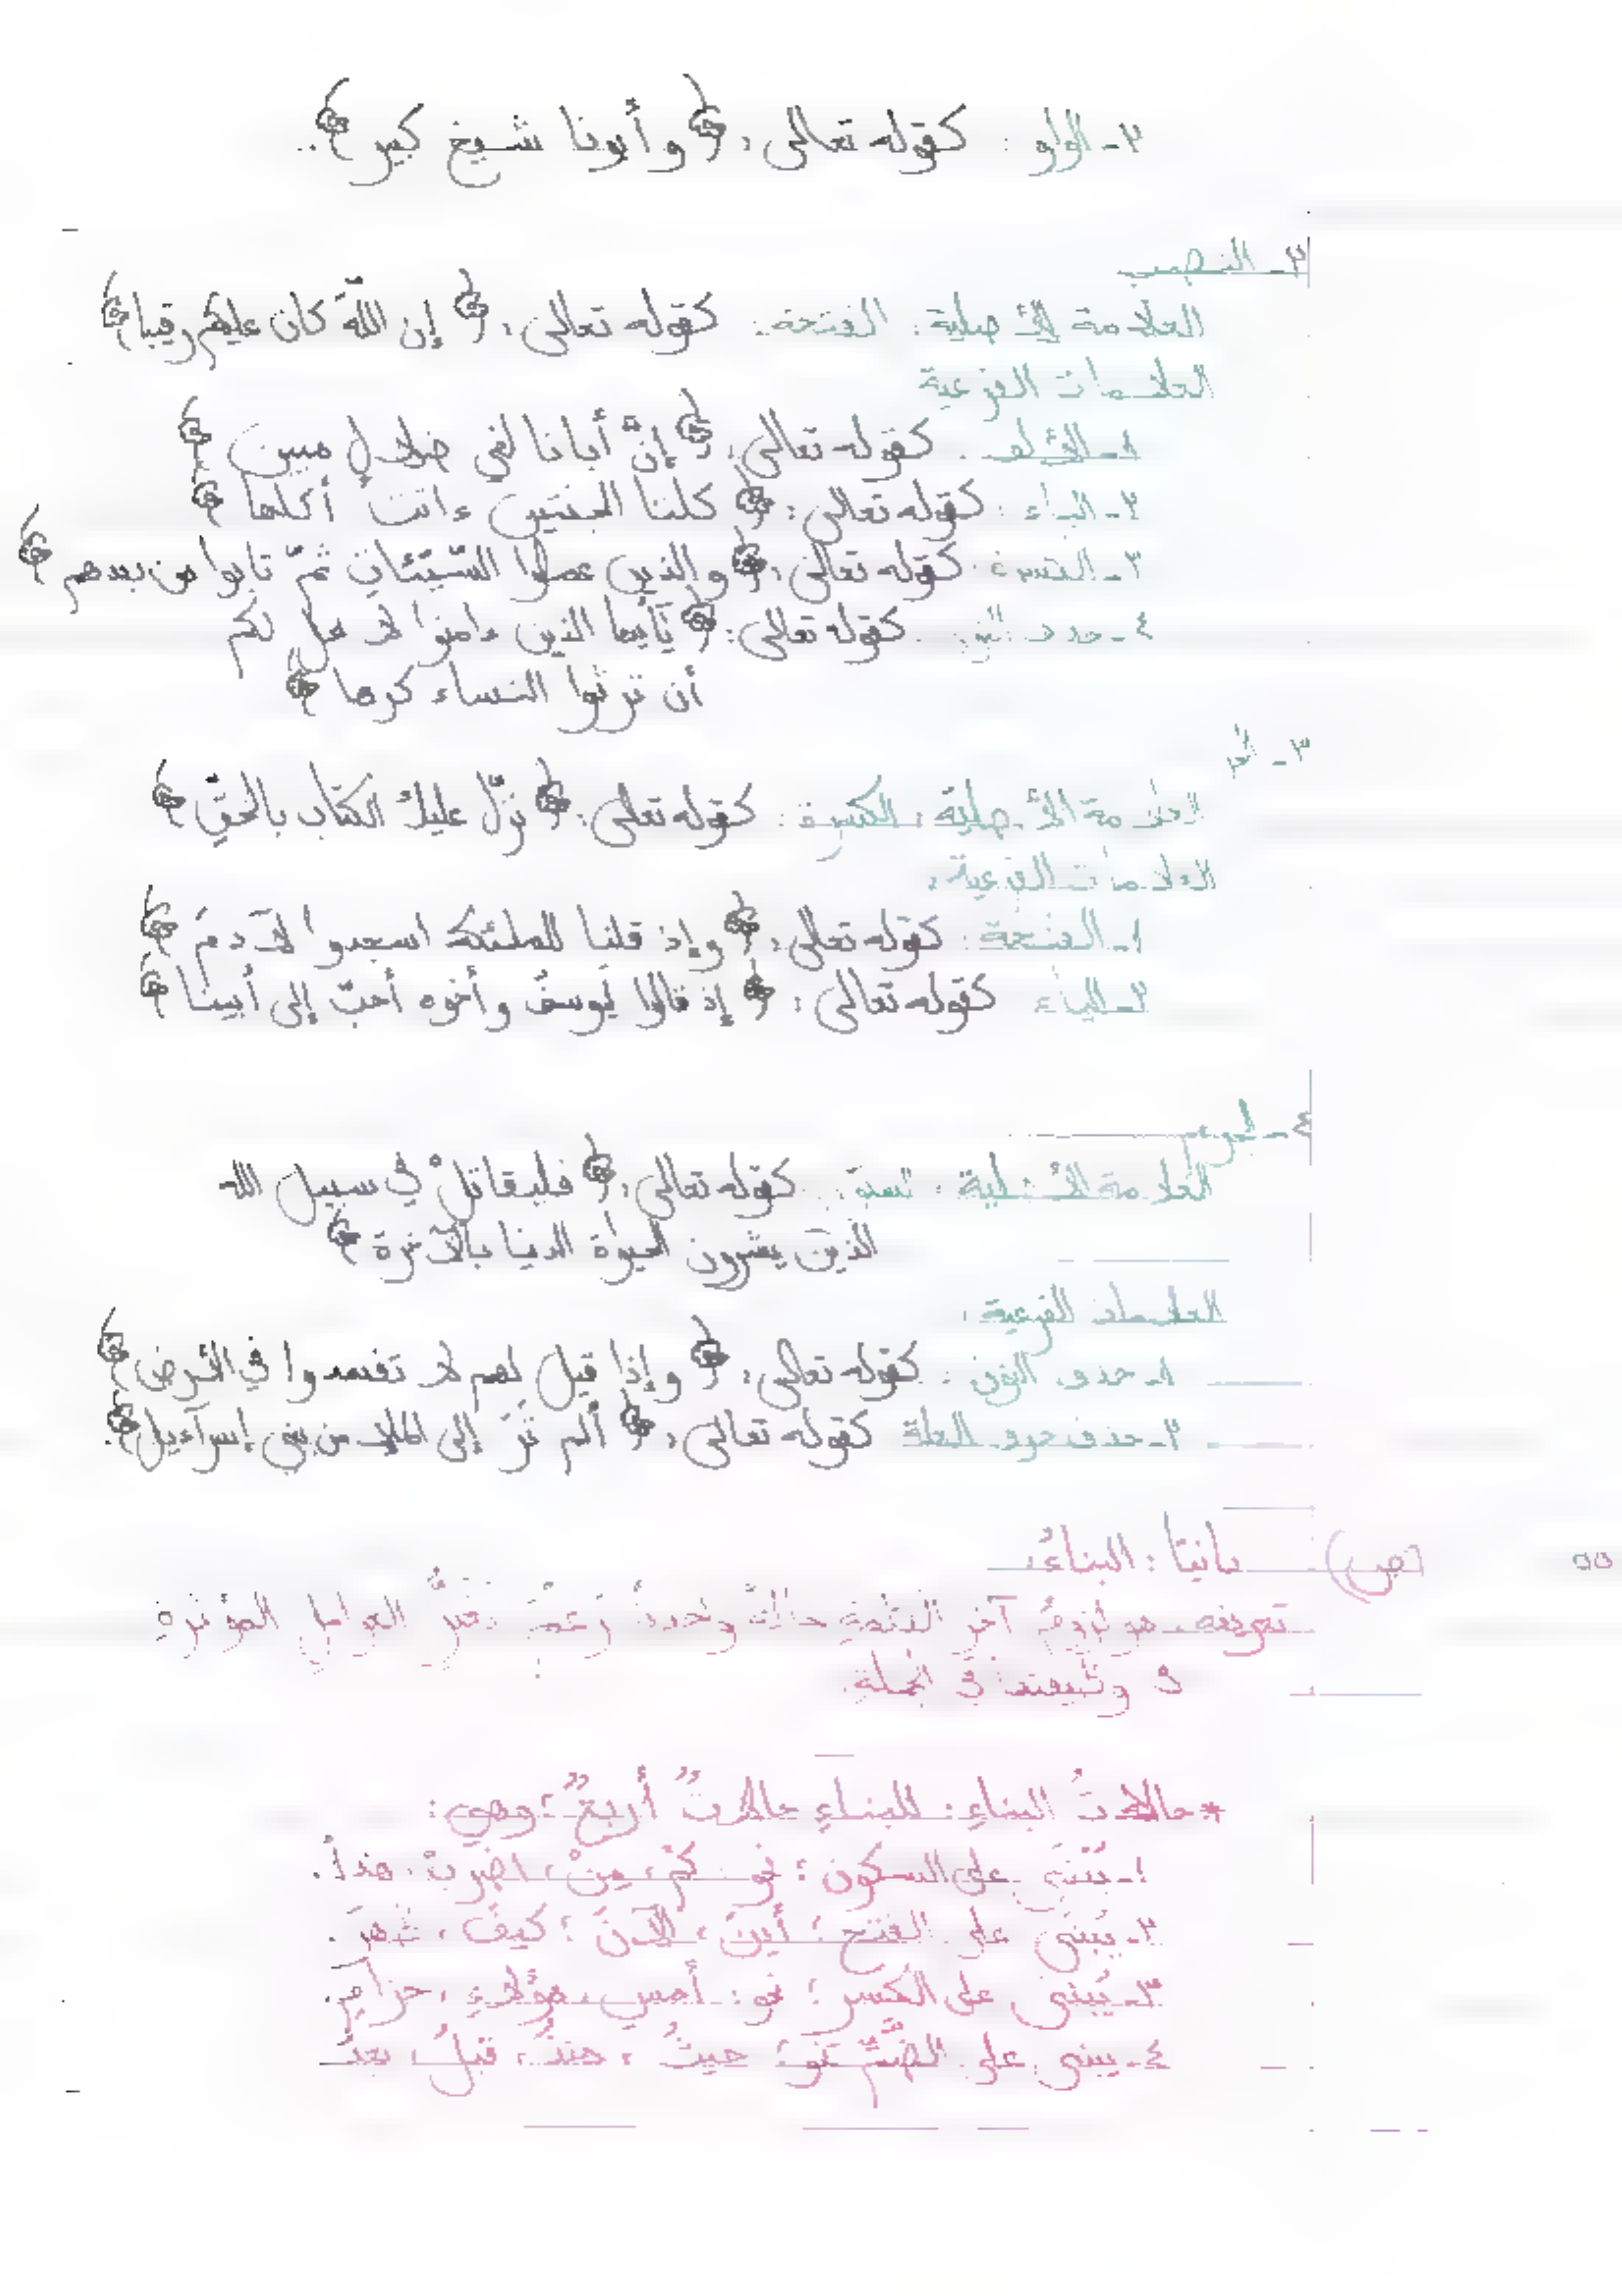 ٢- الواو : كقوله تعالى : ﴿ وأبونا شيخ كبير ﴾ .
٢- النصب
العلامة الأصلية : الفتحة : كقوله تعالى : ﴿ إن اللّه كان عليكم رقيبا ﴾
العلامات الفرعية
١- الألف : كقوله تعالى : ﴿ إنّ أبانا لفي ضلال مبين ﴾
٢- الياء : كقوله تعالى : ﴿ كلتا الجنتين ءاتت أكلها ﴾
٣- الكسرة : كقوله تعالى : ﴿ والذين عملوا السّيّئات ثمّ تابوا من بعدهم ﴾
٤- حذف النون : كقوله تعالى : ﴿ يَأيها الذين ءامنوا لا يحل لكم
أن ترثوا النساء كرها ﴾
٣- الجر
العلامة الأصلية : الكسرة : كقوله تعالى : ﴿ نزّل عليك الكتاب بالحقّ ﴾
العلامات الفرعية :
١- الفتحة : كقوله تعالى : ﴿ وإذ قلنا للملئكة اسجدوا لآدمَ ﴾
٢- الياء كقوله تعالى : ﴿ إذ قالوا ليوسفُ وأخوه أحبّ إلى أبينا ﴾
٤- الجزم
العلامة الأصلية : كقوله تعالى : ﴿ فليقاتلْ في سبيل الله
الذين يشرون الحيوٰة الدنيا بالآخرة ﴾
العلامات الفرعية :
١- حذف النون : كقوله تعالى : ﴿ وإذا قيل لهم لا تفسدوا في الأرض ﴾
٢- حذف حرف العلة كقوله تعالى : ﴿ ألم تَرَ إلى الملإ من بني إسرآءيل ﴾ .
(ص) ثانيًا : البناءُ :
تعريفه هو لزومُ آخرِ الكلمةِ حالةً واحدةً رغمَ تغيّرِ العواملِ المؤثرةِ
في الجملةِ .
* حالاتُ البناءِ : للبناءِ حالاتٌ أربعٌ ؛ وهي :
١- يُبنَى على السكون ؛ نحو كمْ ، مِنْ ، اضربْ ، هذا .
٢- يُبنَى على الفتح : أينَ ، الآنَ ؛ كيفَ ،
٣- يُبنى على الكسر ؛ نحو : أمسِ ، هؤلاءِ ، حزامِ .
٤- يبنى على الضمّ نحو : حيثُ ، منذُ ، قبلُ ، بعدُ